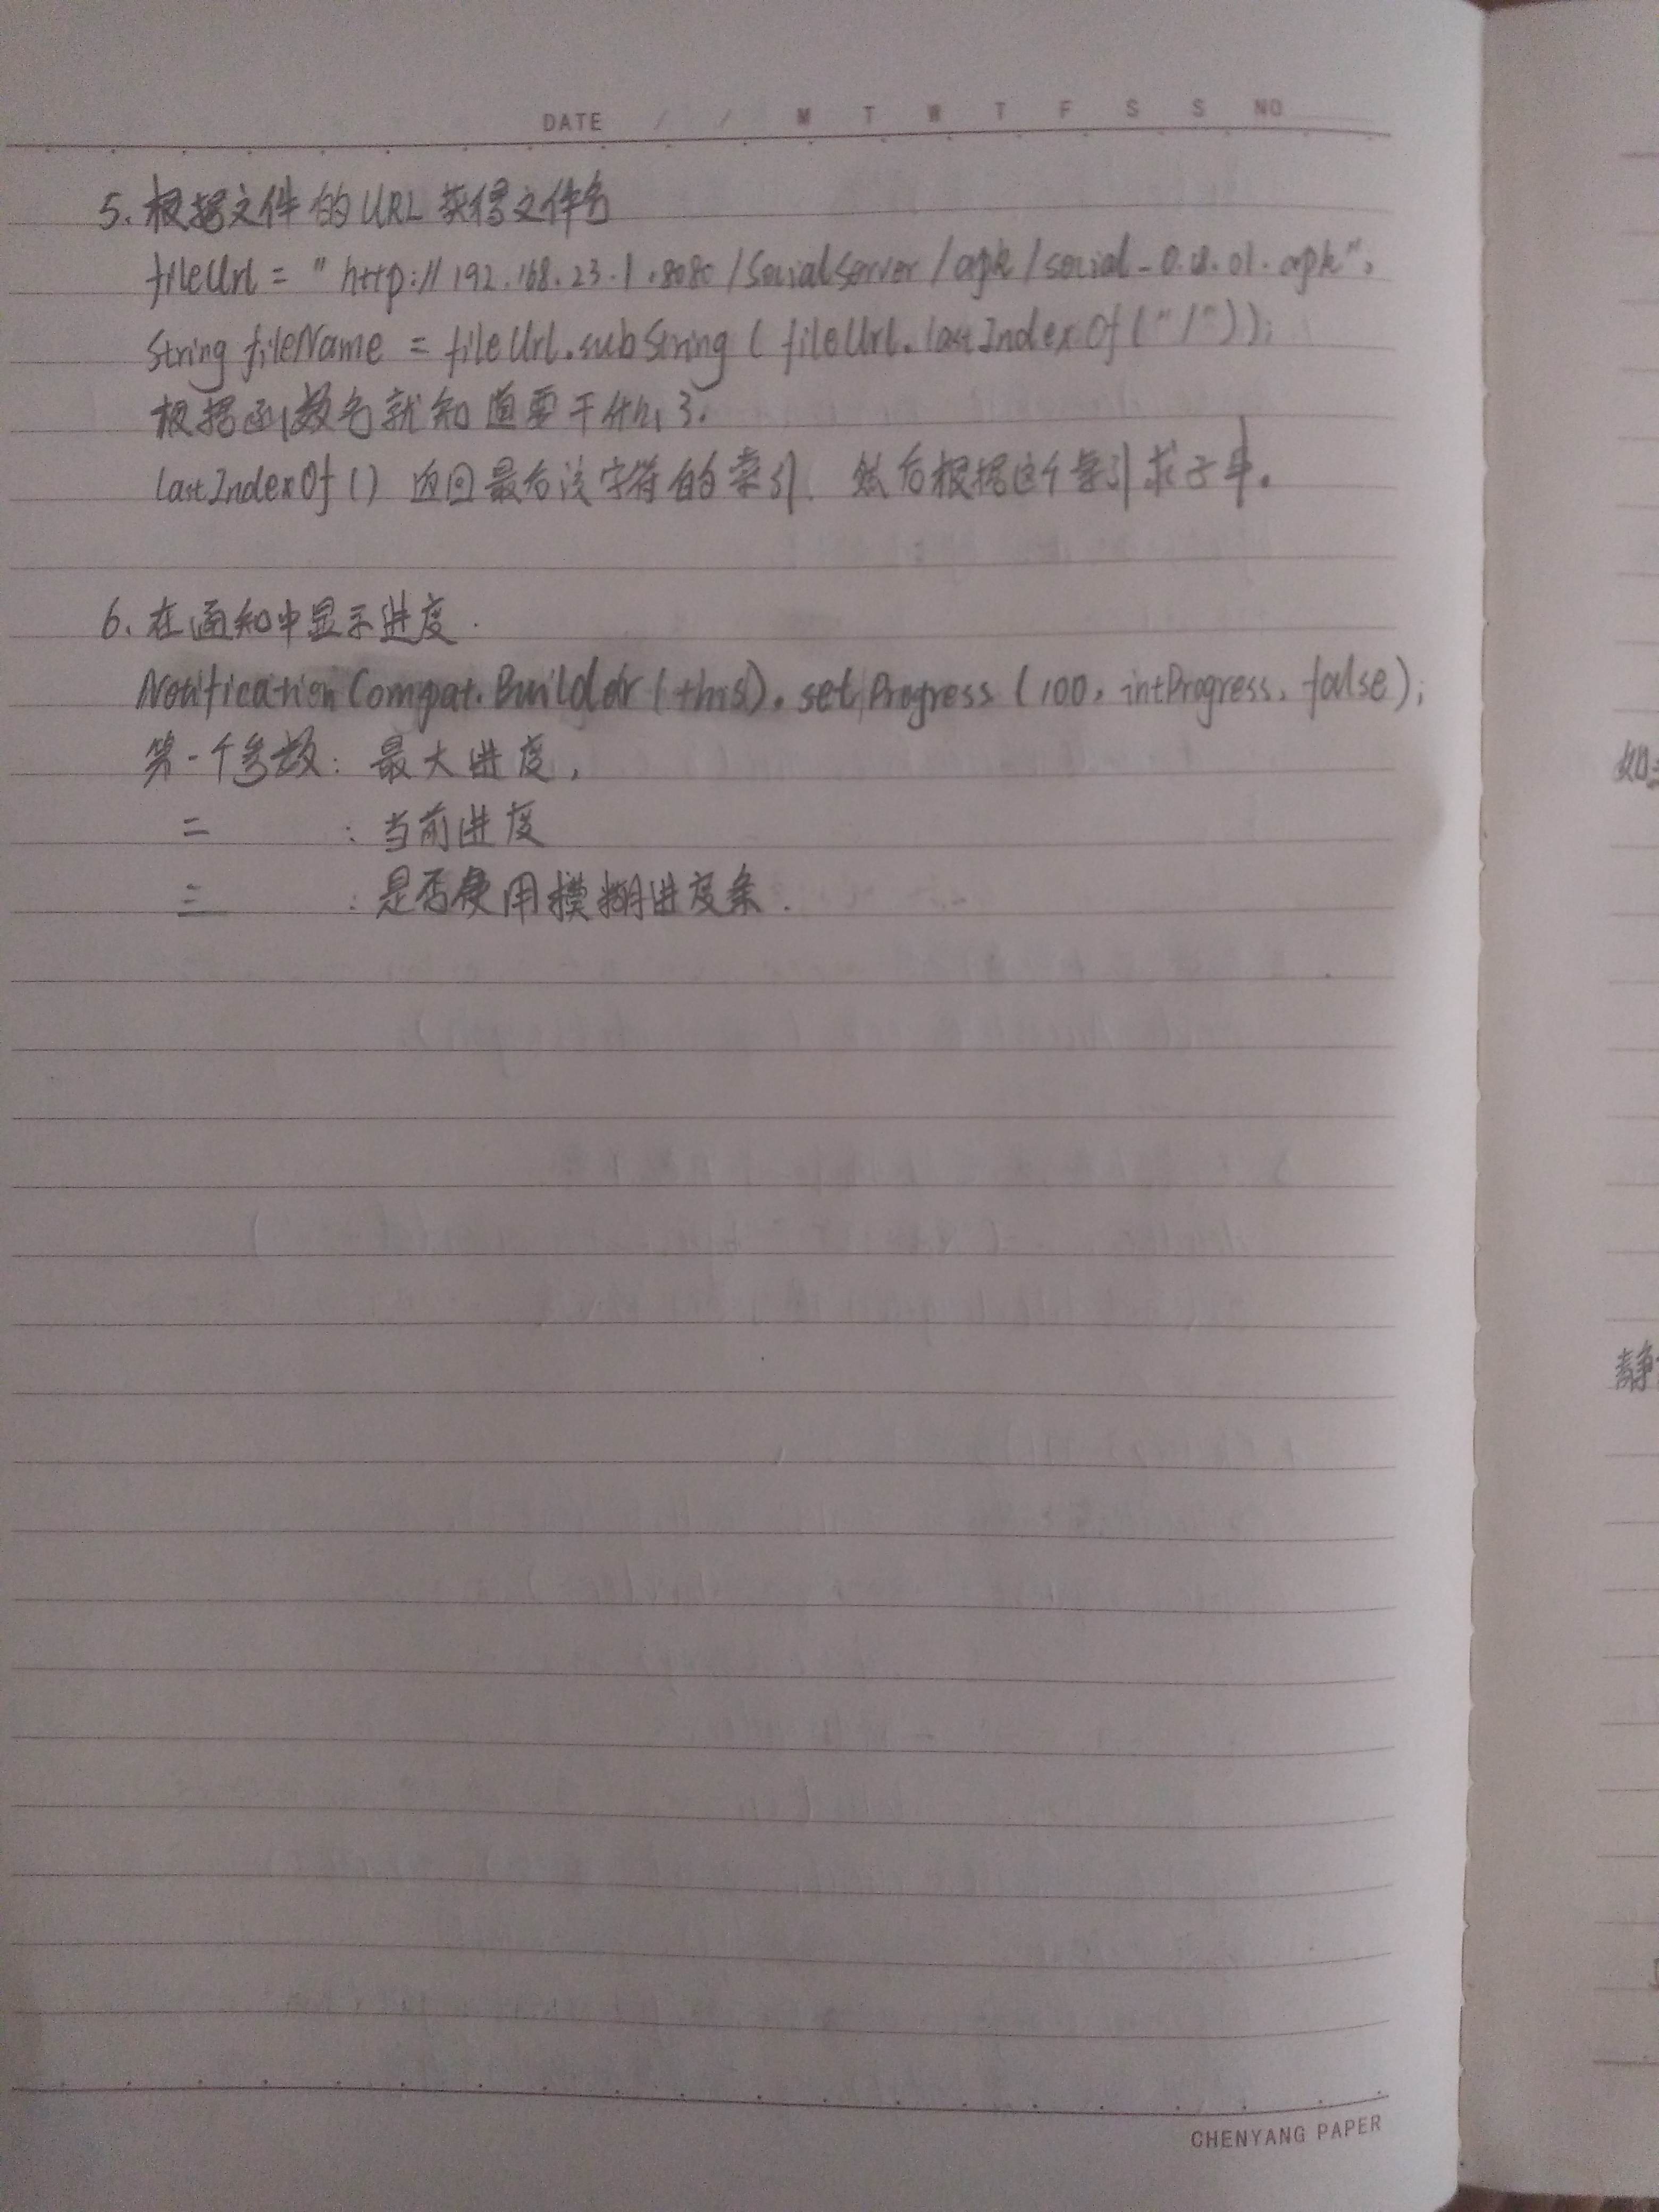 DATE / / M T W T F S S NO
5. 根据文件的URL获得文件名
fileUrl = "http://192.168.23.1:8080/SocialServer/apk/social-0.0.01.apk";
String fileName = fileUrl.subString(fileUrl.lastIndexOf("/"));
根据函数名就知道要干什么了.
lastIndexOf() 返回最后该字符的索引. 然后根据这个索引求子串.
6. 在通知中显示进度.
NotificationCompat.Builder(this).setProgress(100, intProgress, false);
第一个参数: 最大进度,
二 : 当前进度
三 : 是否使用模糊进度条.
静
CHENYANG PAPER